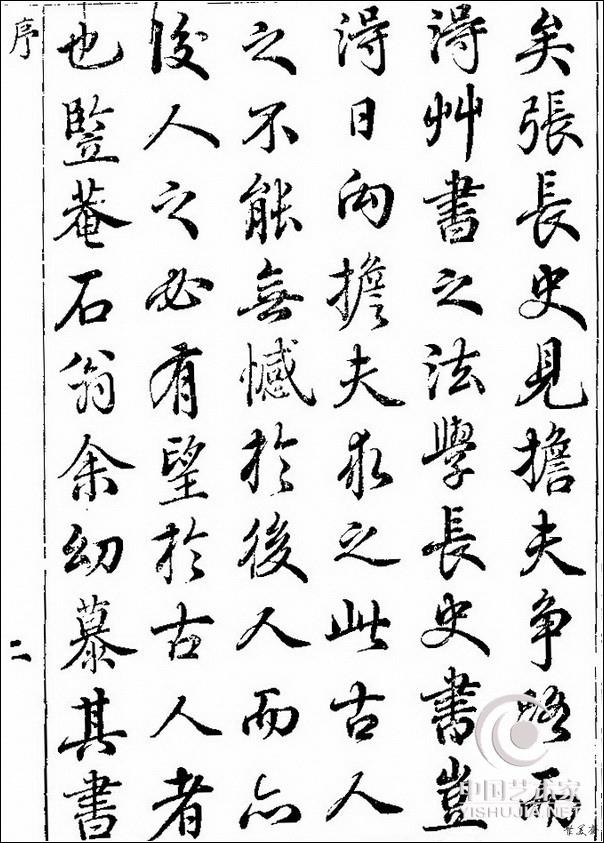 矣張長史見擔夫争路而
得艸書之法學長史書豈
得日向擔夫求之此古人
之不能無憾於後人而亦
後人之必有望於古人者
也豎菴石翁余幼慕其書
序
二
中国艺术家
YISHUJIA.NET